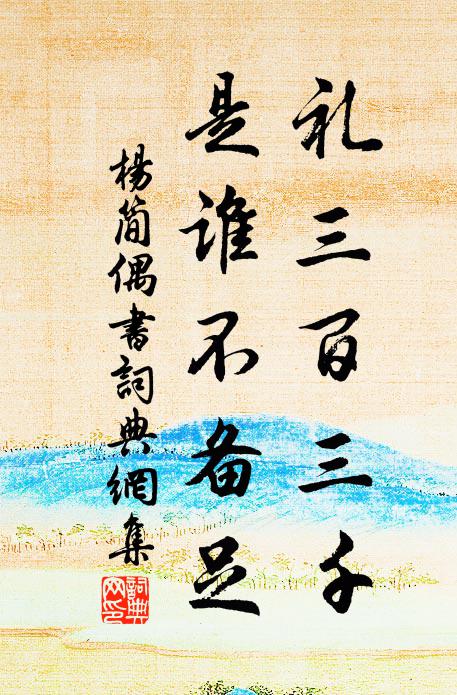 礼三百三千
是谁不备足
楊简偶書詞典網集
詞典